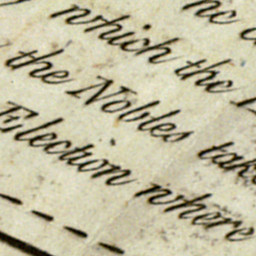 which the
the Nobles take
Election where